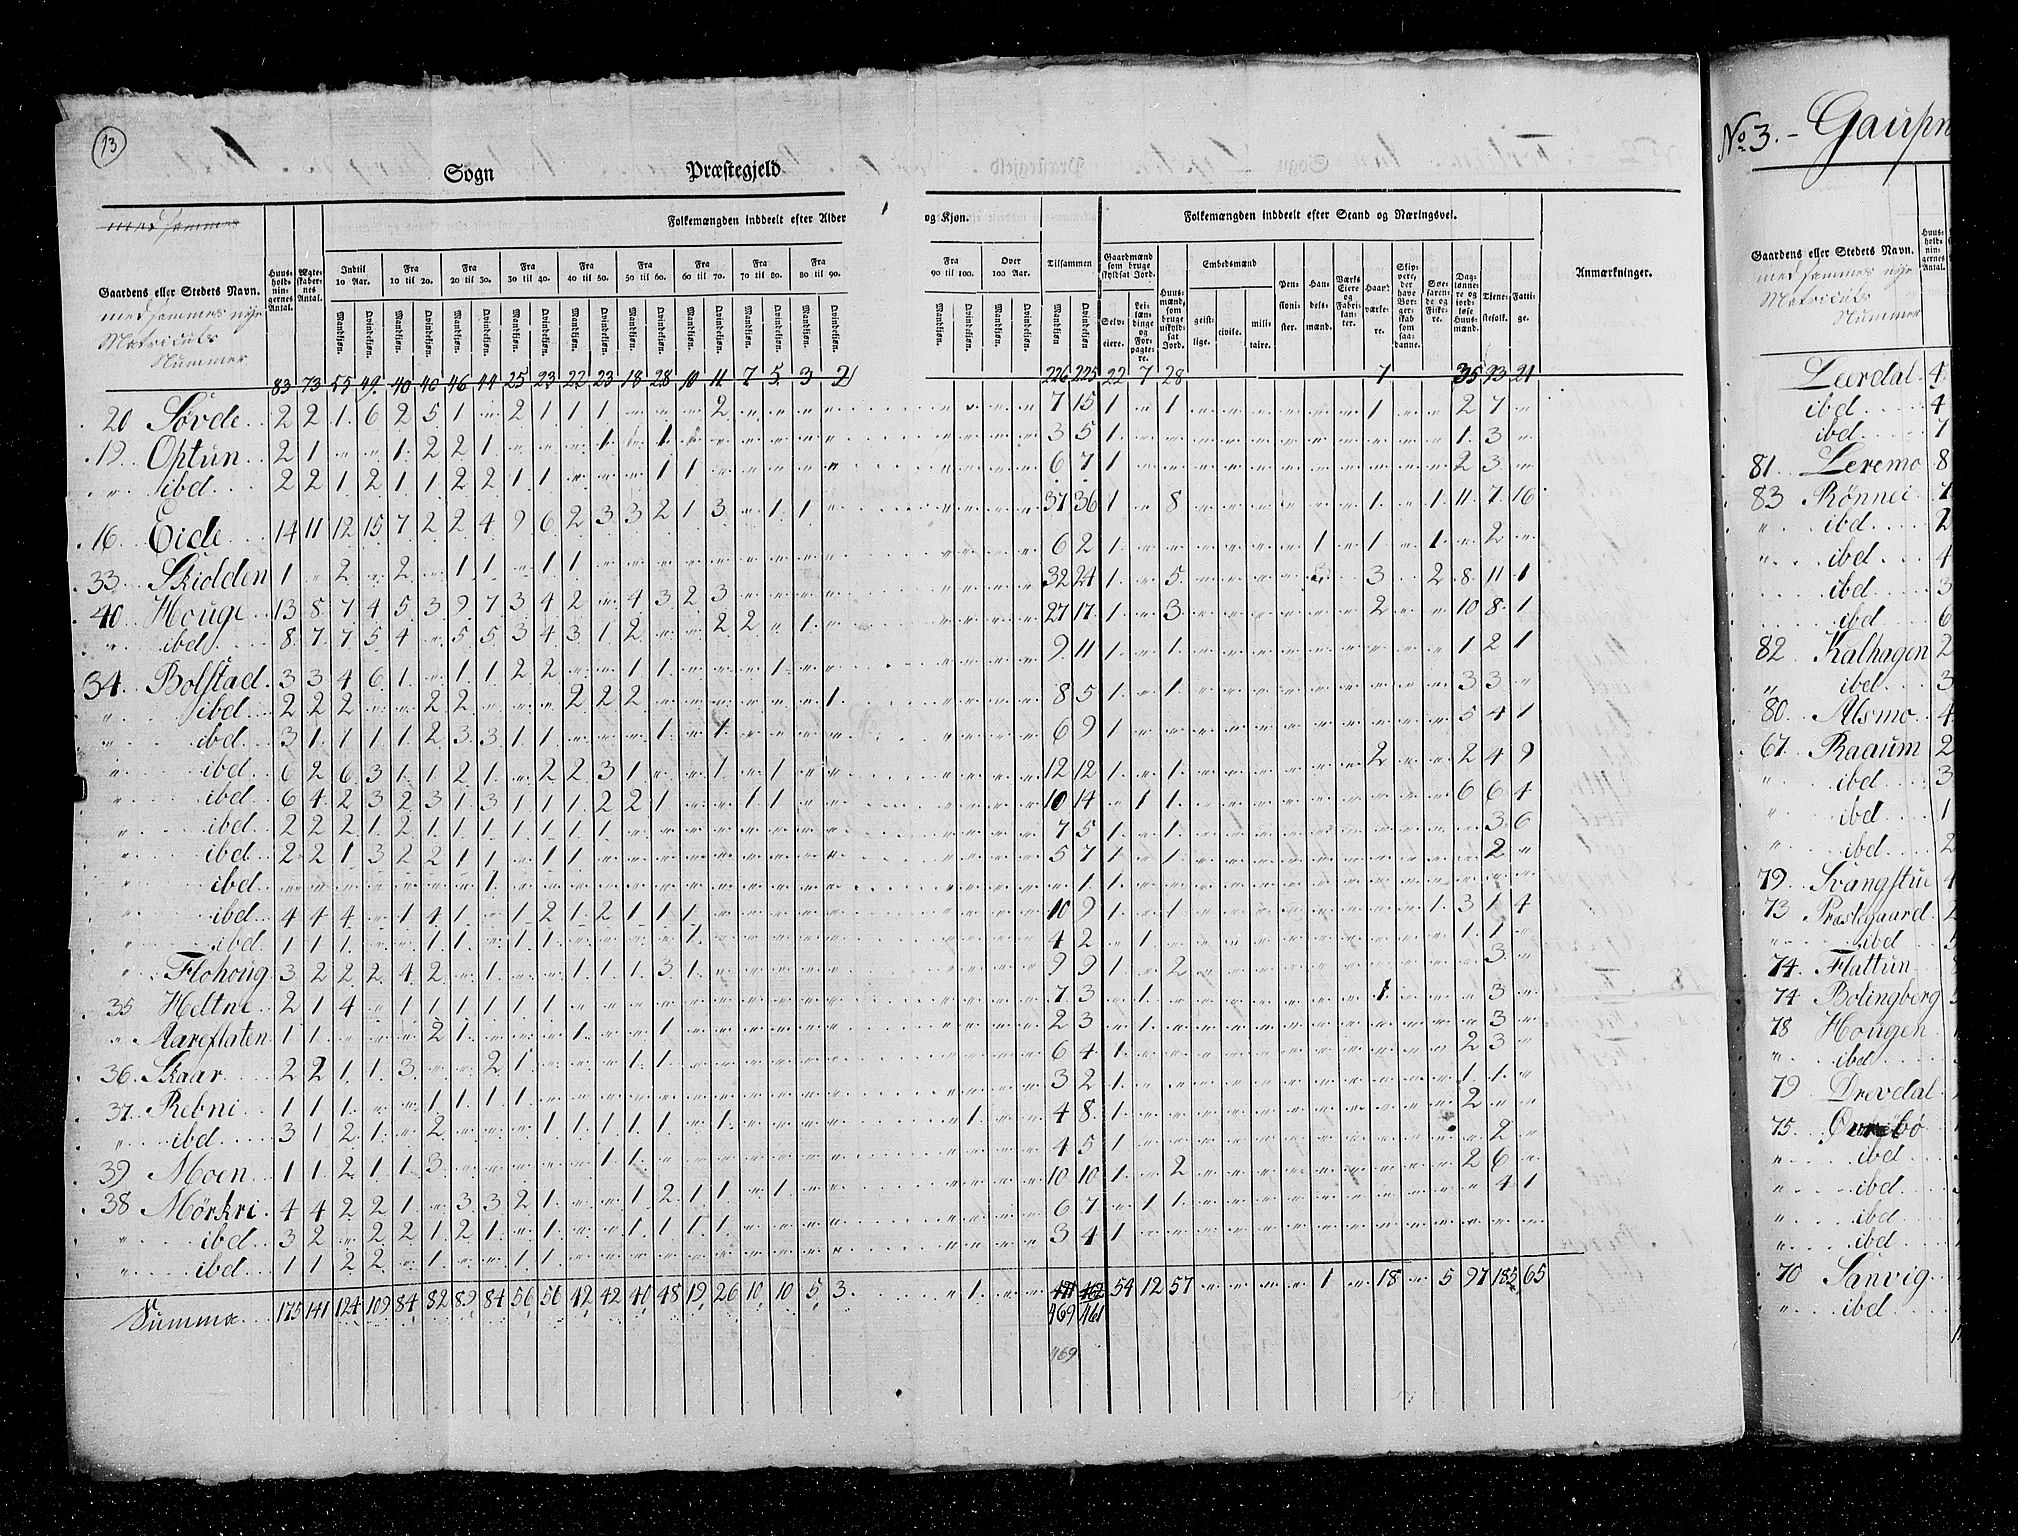 13
Sogn Præstegjeld
med sammes
Gaardens eller Stedets Navn.
med sammes nye
Matriculs
Nummer
Huus-holdnin-gernes Antal.
Ægte-skaber-nes Antal.
Folkemængden inddeelt efter Alder og Kjøn.
Indtil 10 Aar.
Fra 10 til 20.
Fra 20 til 30.
Fra 30 til 40.
Fra 40 til 50.
Fra 50 til 60.
Fra 60 til 70.
Fra 70 til 80.
Fra 80 til 90.
Fra 90 til 100.
Over 100 Aar.
Tilsammen
Mandkjøn. Qvindekjøn.
Folkemængden inddeelt efter Stand og Næringsvei.
Gaardmænd som bruge skyldsat Jord.
Selv-eiere.
Lei-læn-dinge og For-pagte-re.
Huus-mænd, som bruge uskyld-sat Jord.
Embedsmænd
geist-lige.
civile.
mili-taire.
Pen-sioni-ster.
Han-dels-mænd.
Værks Eiere og Fabri-kanter.
Haand-værke-re.
Skip-pere, der have Bor-ger-skab som saa-danne.
Søe-faren-de og Fiske-re.
Dag-lønne-re og jord-løse Huus-mænd.
Tjene-stefolk.
Fatti-ge.
Anmærkninger.
83 73 55 49 40 40 46 44 25 23 22 23 18 28 10 11 7 5 3 2 226 225 22 7 28 7 35 93 21
20 Sørde 2 2 1 6 2 5 1 " 2 1 1 1 " " " 2 " " " " 7 15 1 " 1 1 2 7 "
19 Optun 2 1 " " 1 2 2 1 " " " 1 " 1 3 5 1 1 3 "
" ibd 2 2 1 2 1 1 2 2 1 1 " " " 1 1 6 7 1 2 3 "
16 Eide 14 11 12 15 7 2 2 4 9 6 2 3 3 2 1 3 " 1 1 " 37 36 1 " 8 1 " 1 11 7 16
33 Skiolden 1 " 2 " 2 " 1 1 " 1 1 6 2 1 1 1 1 " 2 "
40 Houge 13 8 7 4 5 3 9 7 3 4 2 " 4 3 2 3 32 24 1 " 5 3 2 8 11 1
" ibd 8 7 7 5 4 " 5 5 3 4 3 1 2 " " 2 2 " 1 27 17 1 " 3 2 10 8 1
34 Bolstad 3 3 4 6 1 " 1 1 2 2 " " 1 1 " " " 1 9 11 1 " 1 1 2 1
" ibd 2 2 2 " " 2 2 " " " 2 2 2 " " " " " " 1 8 5 1 " 1 3 3 "
" ibd 3 1 1 1 1 2 3 3 1 1 " " " 1 " 1 6 9 1 5 4 1
" ibd 6 2 6 3 1 1 2 1 " 2 2 3 1 " " 1 " 1 12 12 1 " 1 2 2 4 9
" ibd 6 4 2 3 2 3 1 3 1 1 1 2 2 1 " " 1 1 10 14 " 1 1 6 6 4
" ibd 2 2 2 1 2 1 1 1 1 1 1 1 7 5 1 " 1 3 6
" ibd 2 2 1 3 2 2 1 1 " 1 1 5 7 1 " 1 2 "
" ibd " " " " " " " 1 " 1 1
" ibd 4 4 4 " 1 4 1 " 1 2 1 2 1 1 1 10 9 1 " 1 1 3 1 4
" ibd 1 1 1 " " 1 1 " 1 1 " " " " 1 4 2 " 1 1 1 "
" Flohoug 3 2 2 2 4 2 " 1 " " 1 1 1 3 1 9 9 1 " 2 3 "
35 Heltne 2 1 4 " 1 1 1 1 1 1 7 3 " 1 1 3 "
" Aareflaten 1 1 " " " 2 1 " " " 1 " " 1 2 3 " 1 3 "
36 Skaar 2 2 1 1 3 " " 2 1 " " " 1 1 6 4 1 2 3 "
37 Rebni 1 1 1 " " 1 1 1 1 3 2 1 1 1 "
" ibd 3 1 2 1 " 2 " " " 1 1 1 1 1 " 1 1 4 8 1 2 " "
39 Moen 1 1 2 1 1 3 " " " " " 1 1 4 5 1 2 "
38 Mörkri 4 4 2 2 1 " 3 3 2 1 " " 1 2 1 1 " 1 10 10 1 " 2 2 6 "
" ibd 3 2 " 2 2 1 2 1 " 1 1 " 1 1 1 1 6 7 " 1 1 4 1
" ibd 1 1 2 2 " 1 " " 1 1 3 4 1
Summa 175 141 124 109 84 82 89 84 56 56 42 42 40 48 19 26 10 10 5 3 " 1 471 462 54 12 57 " " " " 1 " 18 " 5 97 185 65
469 461
469
No 3. - Gaupn
Gaardens eller Stedets Navn.
med sammes nye
Matriculs
Nummer
Huus-holdnin-gernes Antal.
Leerdal 4
ibd 4
ibd 7
81 Leremo 8
83 Rönnei 7
" ibd 2
" ibd 4
ibd 3
ibd 6
82 Kalhagen 2
" ibd 3
80 Alsmo 4
67 Raaum 2
" ibd 3
" ibd 1
" ibd 2
79 Svangstue 4
73 Præstegaard 2
" ibd 5
74 Flattun
74 Bolingberg
78 Hougen
" ibd
79 Drevdal
75
" ibd
" ibd
" ibd
" ibd
70 Sanvig
" ibd